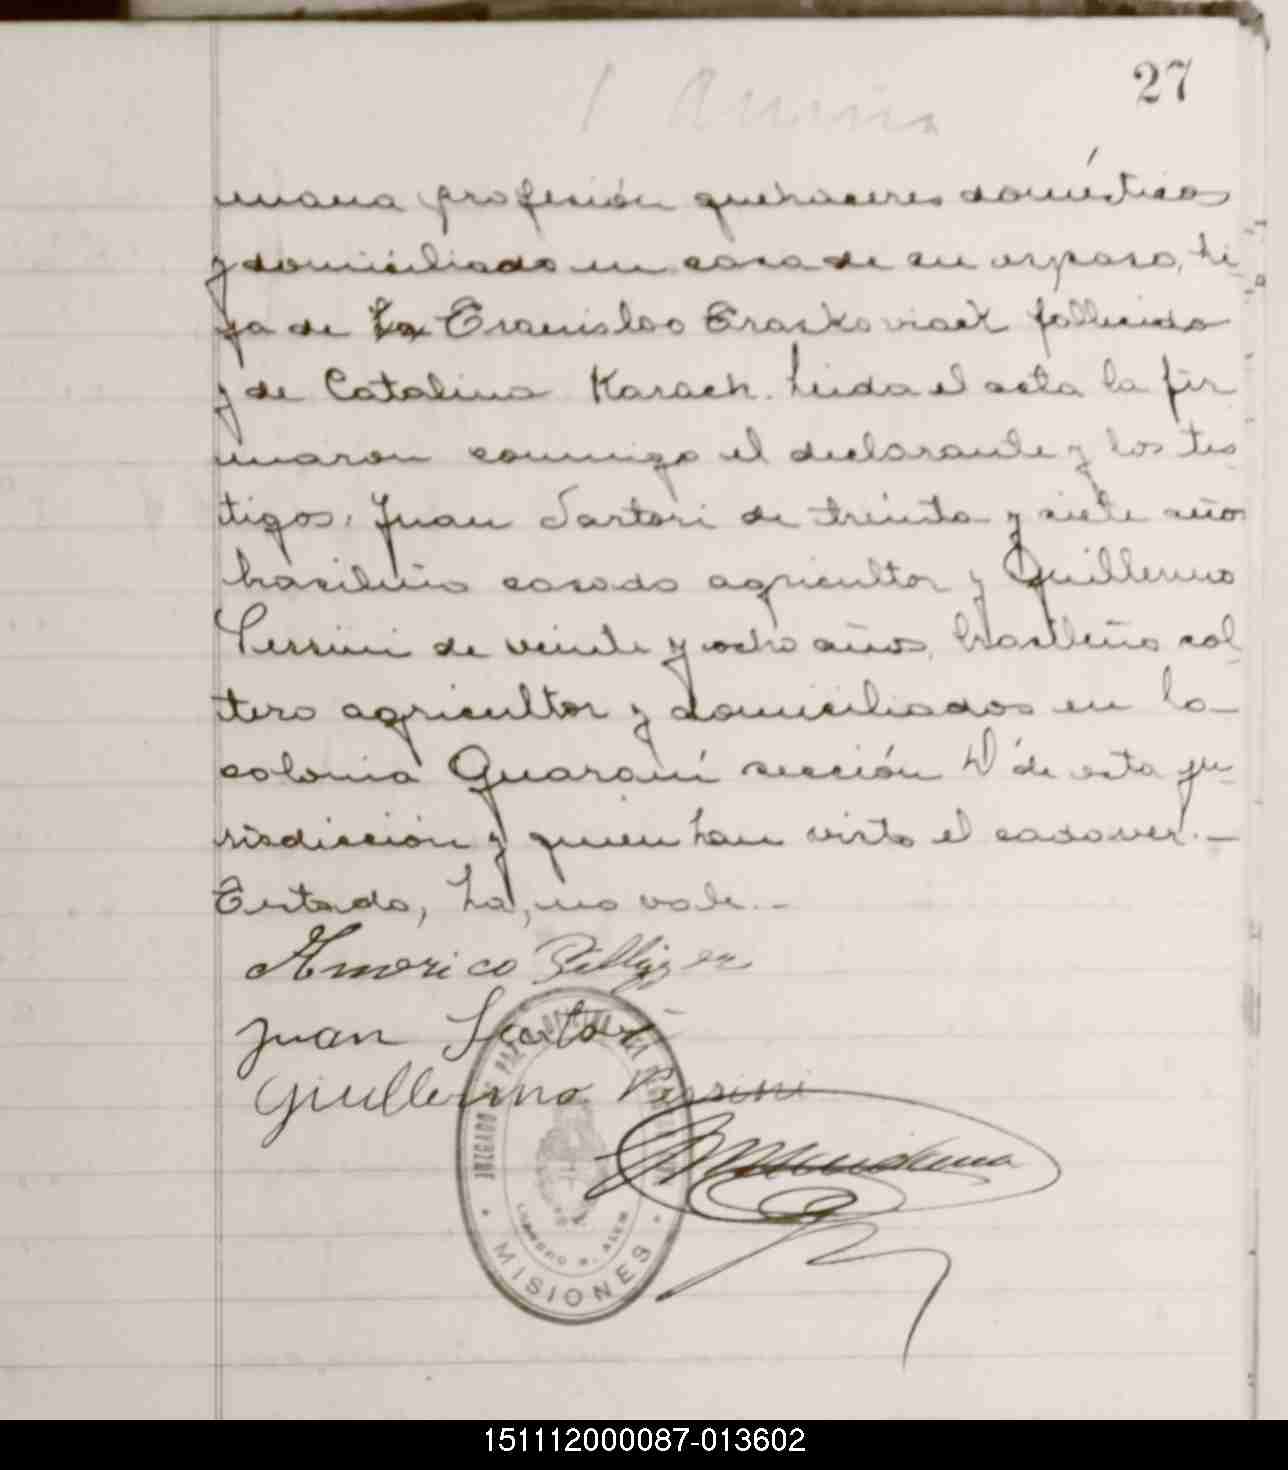 27
mana profesión quehaceres domésticos
y domiciliado en casa de su esposo, hi
ja de La Eranislao Eraskoviack fallecido
y de Catalina Karach. Leida el acta la fir
maron conmigo el declarante y los tes
tigos, Juan Sartori de treinta y siete años
brasileño casado agricultor y Guillermo
Perssini de veinte y ocho años, brasileño sol
tero agricultor y domiciliados en la
colonia Guaraní sección D de esta ju
risdicción y quien han visto el cadaver.—
Testado, La, no vale.—
Americo
Juan Sartori
Guillermo Perssini
JUZGADO DE PAZ
LEANDRO N. ALEM
MISIONES
151112000087-013602